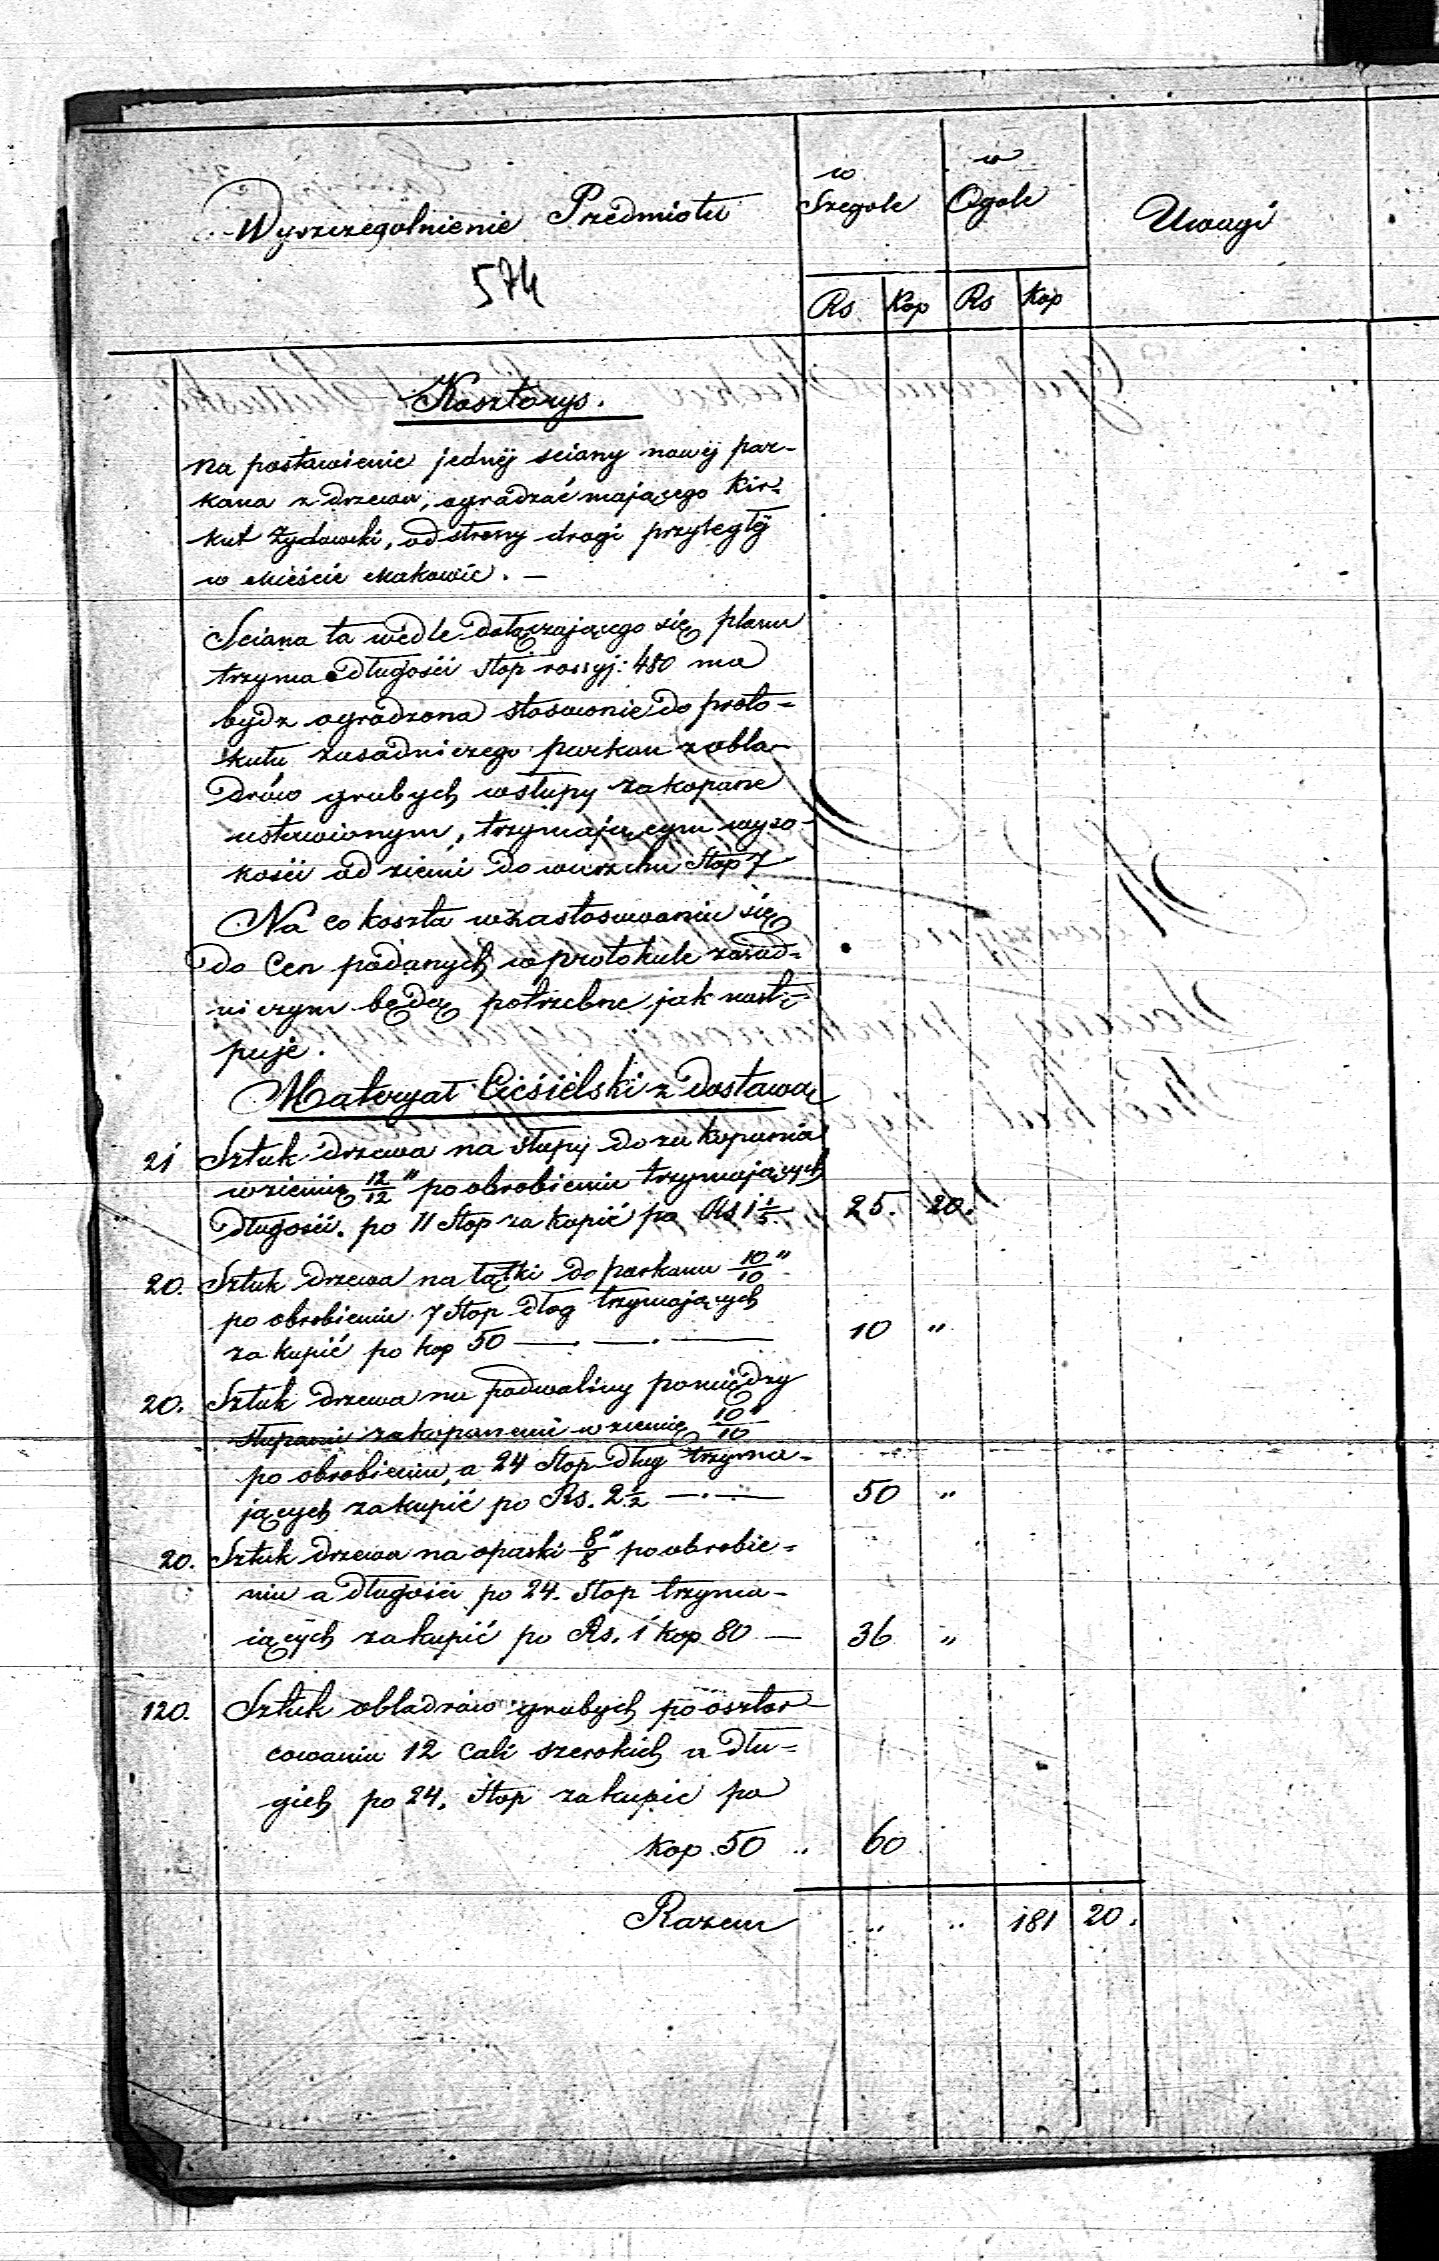 Wyszczegolnienie Przedmiotu
w Szegole
w Ogole
Uwagi
574
Rs Kop Rs Kop
Kosztorys.
Na postawienie jednÿ sciany nowÿ par-
kana z drzewa, ogradzać mającego Kir-
kut Żydowski, od strony drogi przyległÿ
w Mieście Makowie. —
Sciana ta wedle dołączającego się planu
trzyma Długości stop rossyj: 480 ma
bydz ogrodzona stosownie do proto-
kułu zasadniczego parkan z obla-
drów grubych w słupy zakopane
ustawionym, trzymającym wyso-
kości od ziemi do wierzchu Stop 7
Na co koszta w zastosowaniu się
do Cen podanych w protokule zasad-
niczym będą potrzebne jak nastę-
puje.
Materyał Cieśielski z Dostawą
21 Sztuk drzewa na słupy do zakopania
w ziemię 12/12" po obrobieniu trzymających
Długości. po 11 Stop zakupić po Rs 1 1/5. 25. 20.
20. Sztuk drzewa na łątki do parkanu 10/10"
po obrobieniu 7 Stop dłog trzymających
zakupić po kop 50 —.—.— 10 "
20. Sztuk drzewa na podwaliny pomiędzy
słupami zakopanemi w ziemię 10/10"
po obrobieniu, a 24 Stop dług trzyma-
jących zakupić po Rs. 2 1/2 —.— 50 "
20. Sztuk drzewa na opaski 8/8" po obrobie-
niu a Długości po 24. Stop trzyma-
iących zakupić po Rs. 1 kop 80 — 36 "
120. Sztuk obladrów grubych po osztor
cowaniu 12 cali szerokich a dłu-
gich po 24. Stop zakupić po
kop. 50 .. 60
Razem " " 181 20.